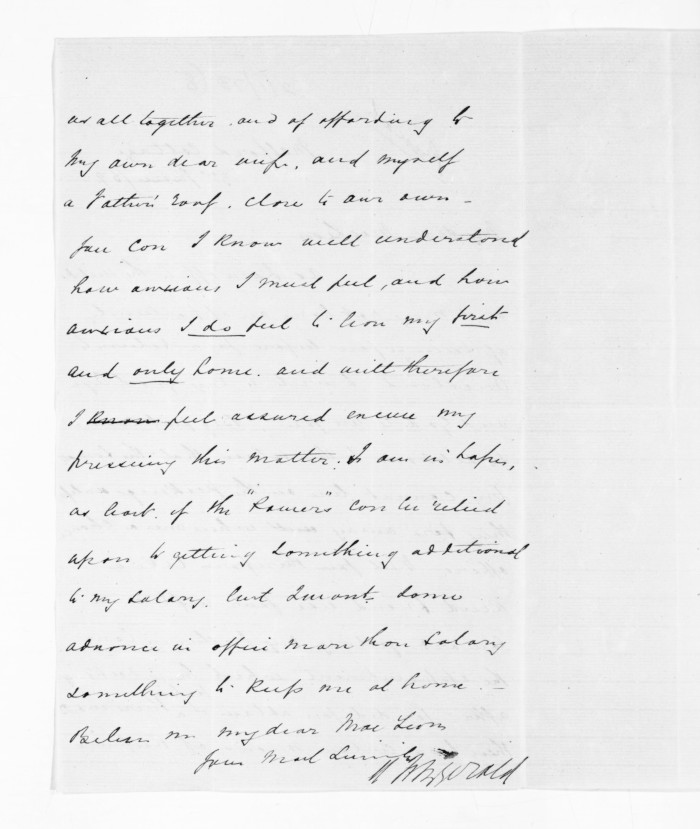 us all together. and of affording to
my own dear wife, and myself
a Father's roof, close to our own -
you can I know well understand
how anxious I must feel, and how
anxious I do feel to my first
and only home. and will therefore
I know feel assured excuse my
pressing this matter. I am in hopes,
as least. if the "Powers" can be relied
upon to getting something additional
to my salary. but I want some
advance in office more than salary
something to keep me at home. -
Believe me my dear Mac Lean
Your Most Sincerely
Fitzgerald